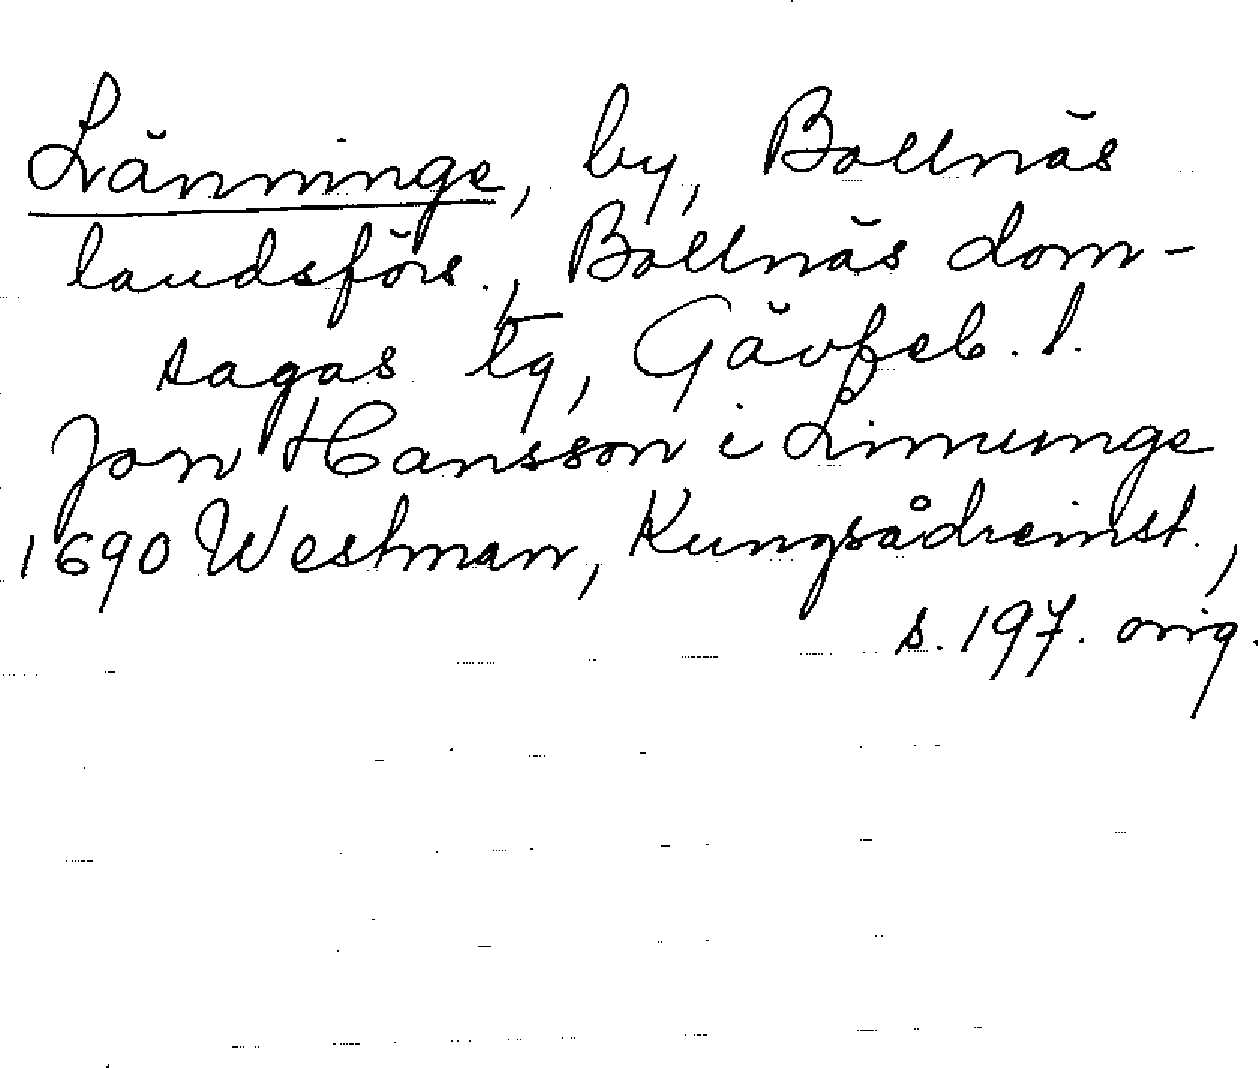 Länninge, by, Bollnäs
landsförs., Bollnäs dom-
sagas tg, Gävleb. l.
Jon Hansson i Linnunge
1690 Westman, Kungsådreinst.,
s. 197. orig.